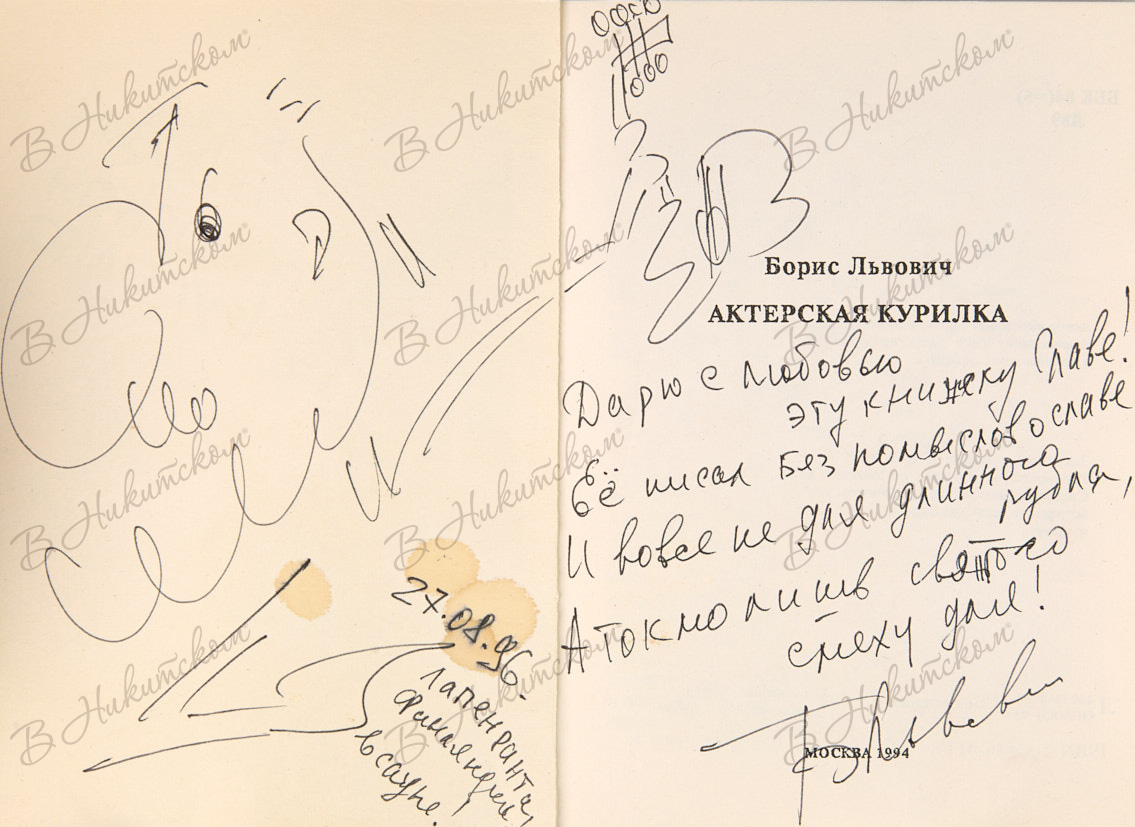 27.08.96.
Лапенранта,
Финляндия,
в сауне!
Борис Львович
АКТЕРСКАЯ КУРИЛКА
Дарю с любовью
эту книжку Славе!
Её писал без помыслов о славе
И вовсе не для длинного
рубля,
А токмо лишь святого
смеху для!
Б. Львович
МОСКВА 1994
В Никитском
В Никитском
В Никитском
В Никитском
В Никитском
В Никитском
В Никитском
В Никитском
В Никитском
В Никитском
В Никитском
В Никитском